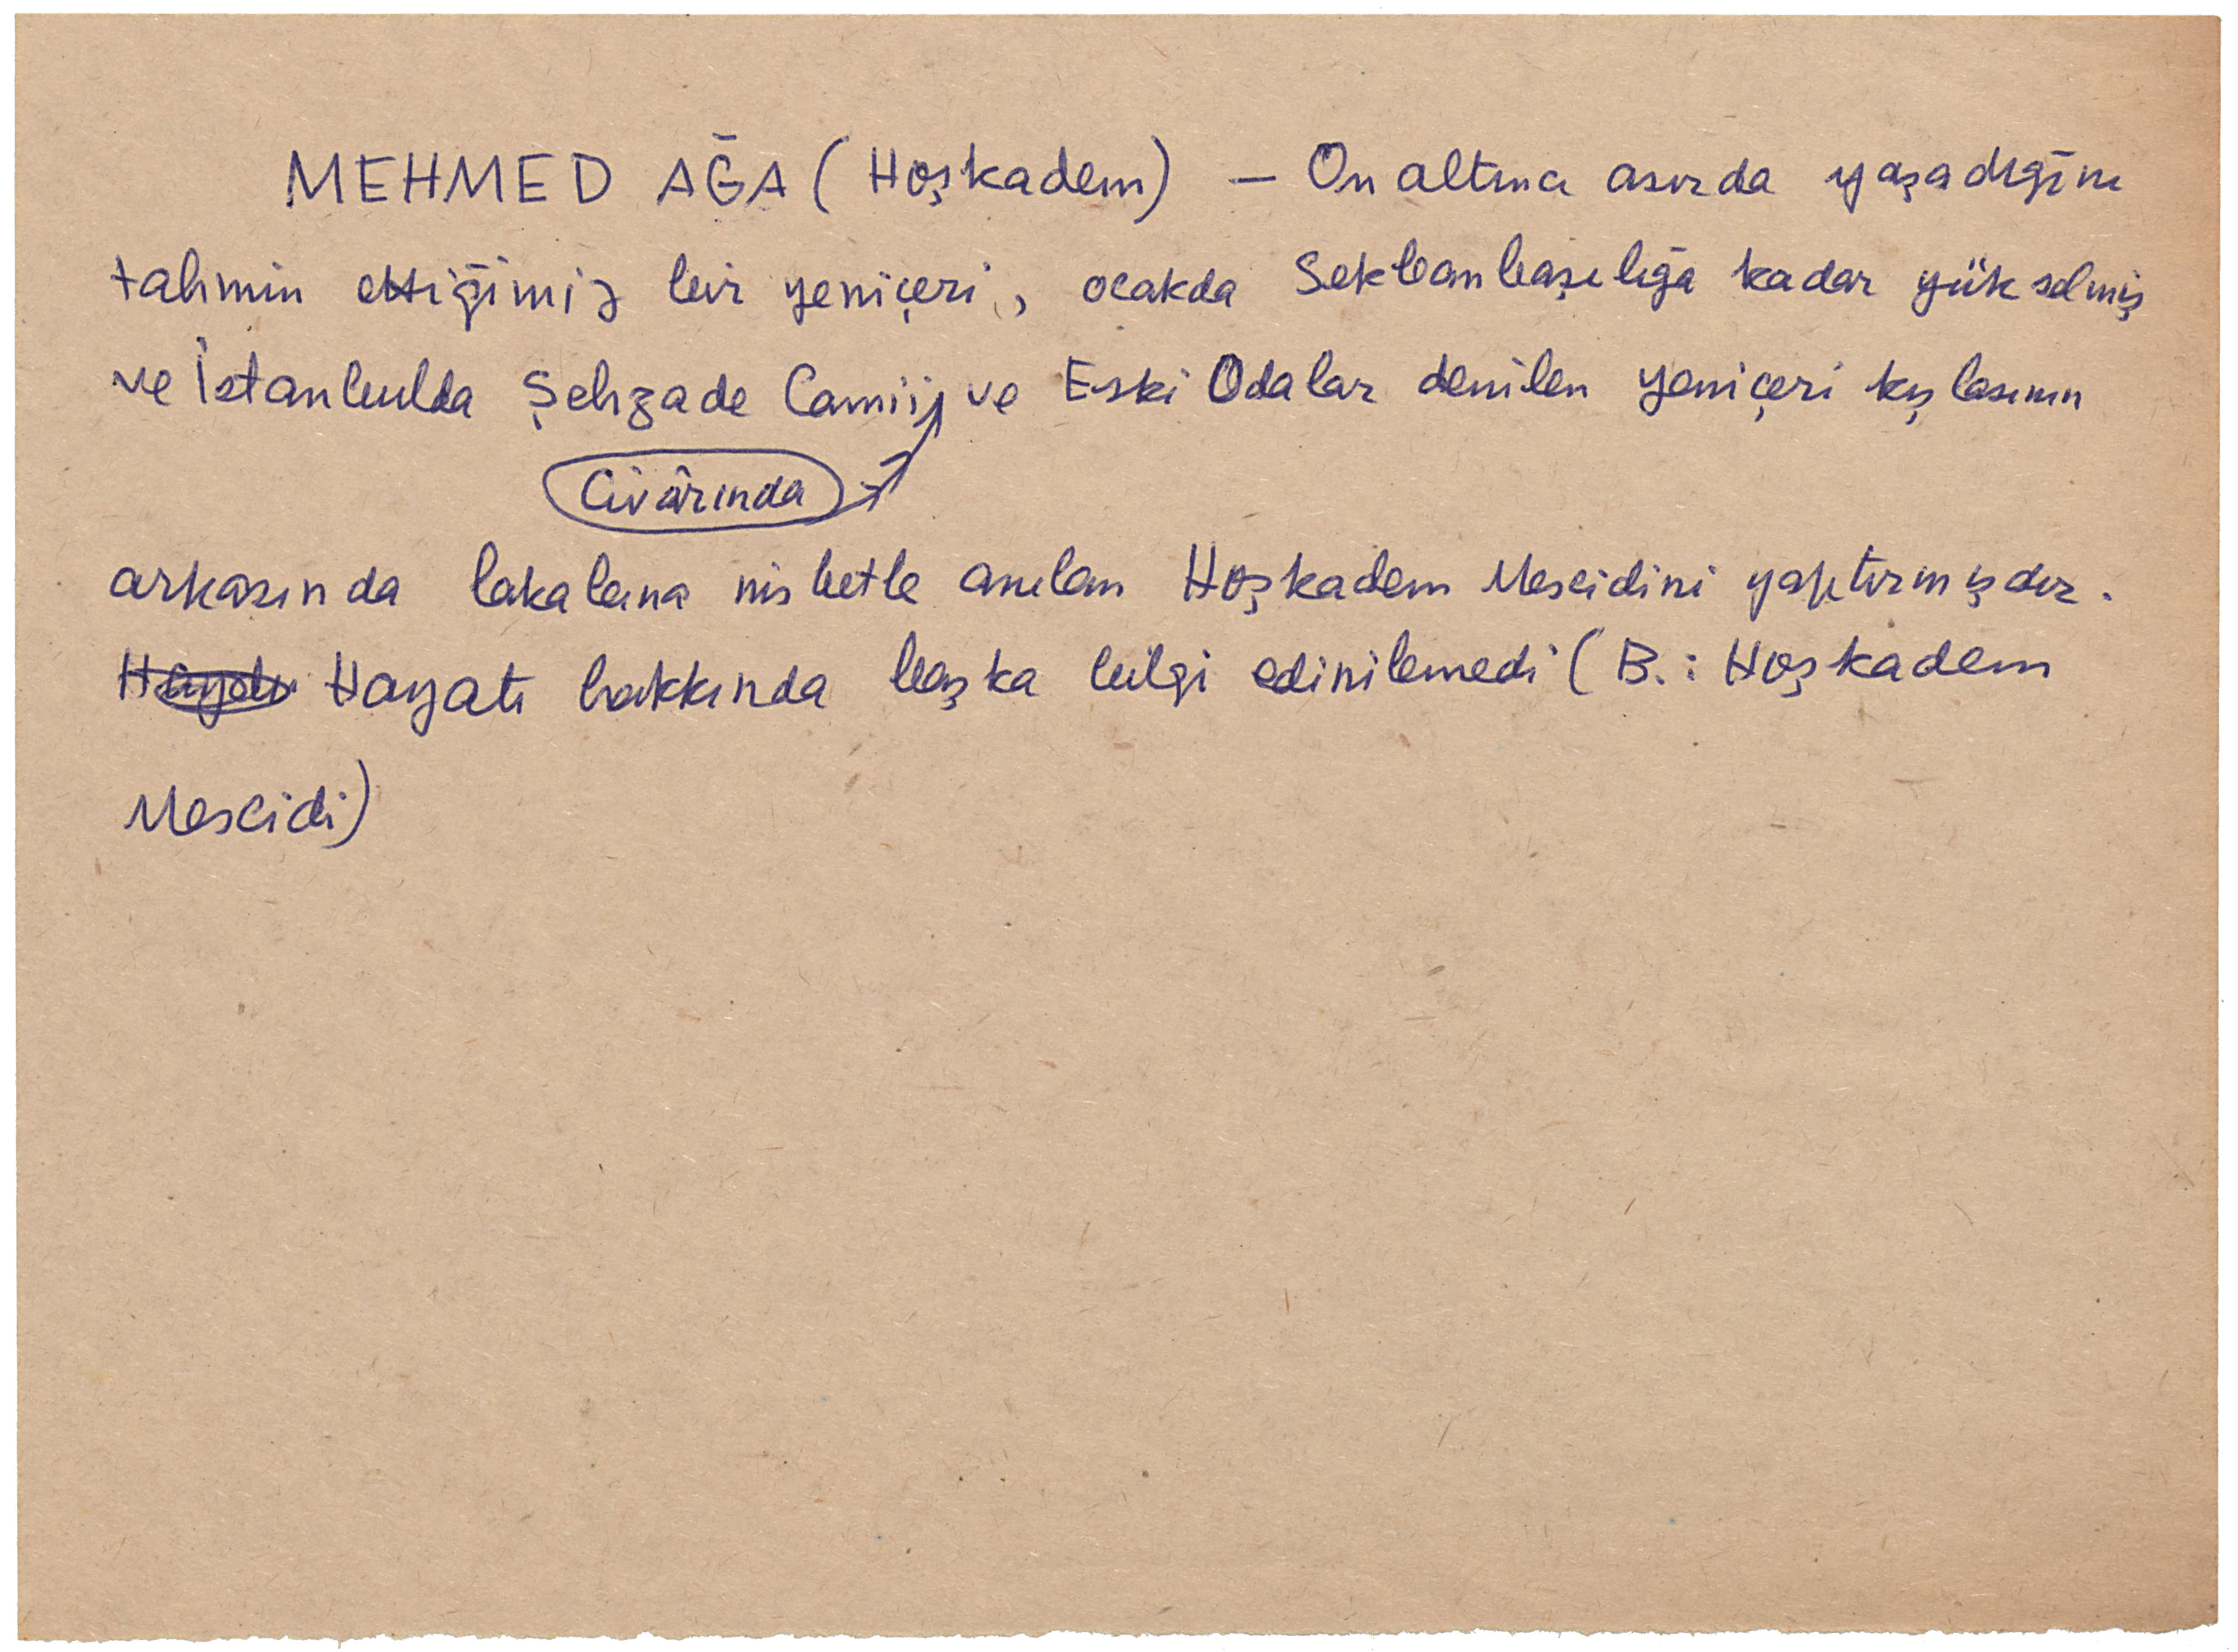 MEHMED AĞA (Hoşkadem) — On altıncı asırda yaşadığını
tahmin ettiğimiz bir yeniçeri, ocakda Sekbanbaşılığa kadar yükselmiş
ve İstanbulda Şehzade Camii ve Eski Odalar denilen yeniçeri kışlasının
Civârında
arkasında lakabına nisbetle anılan Hoşkadem Mescidini yaptırmışdır.
Hayatı Hayatı hakkında başka bilgi edinilemedi (B.: Hoşkadem
Mescidi)